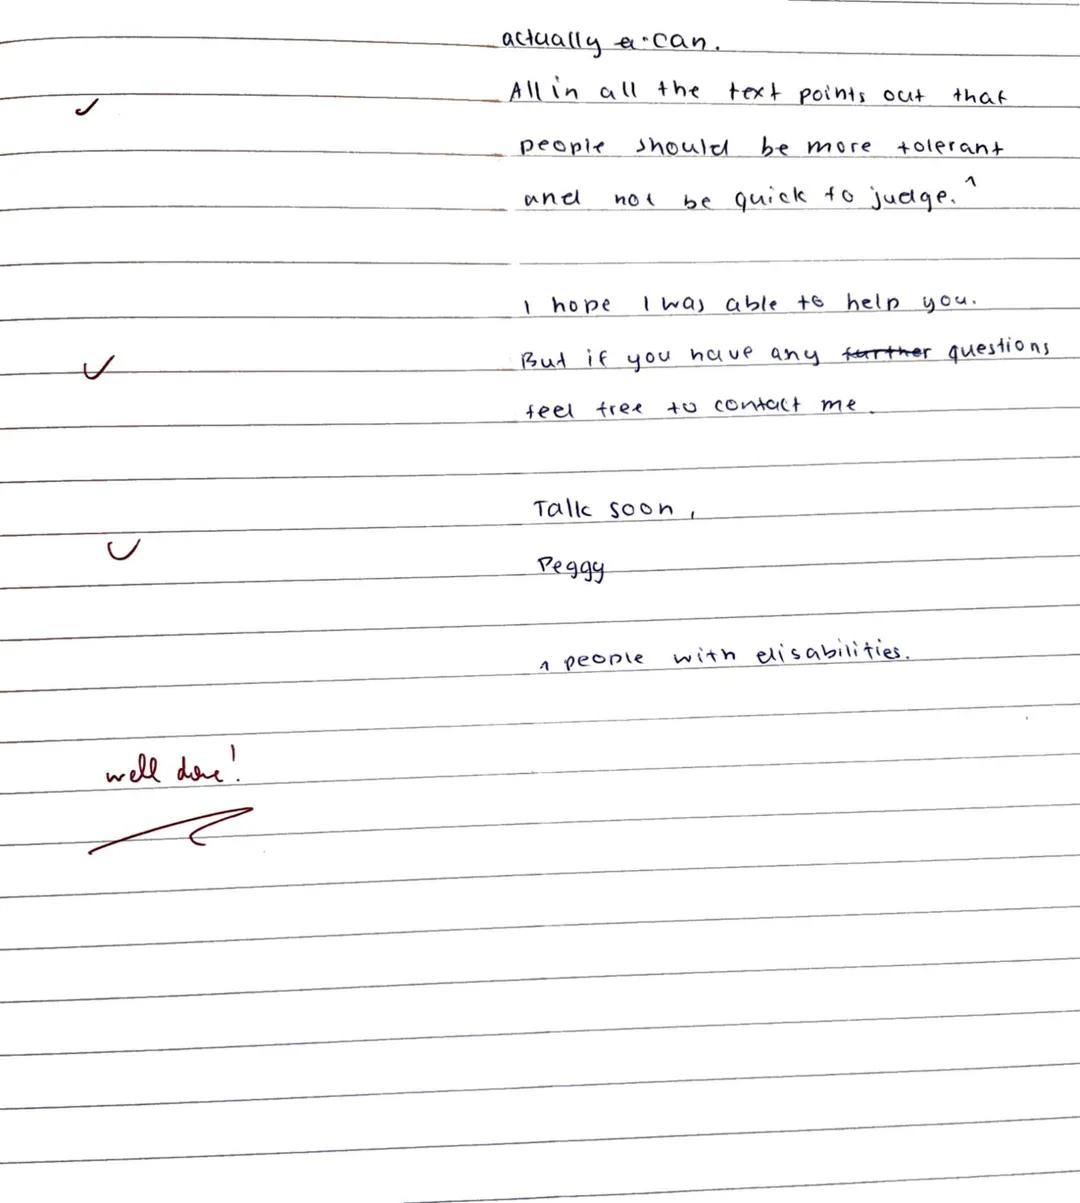 actually a can.
All in all the text points out that
people should be more tolerant
and not be quick to judge. ¹
I hope I was able to help you.
But if you have any further questions
feel free to contact me.
Talk soon,
Peggy
¹ people with disabilities.
well done!